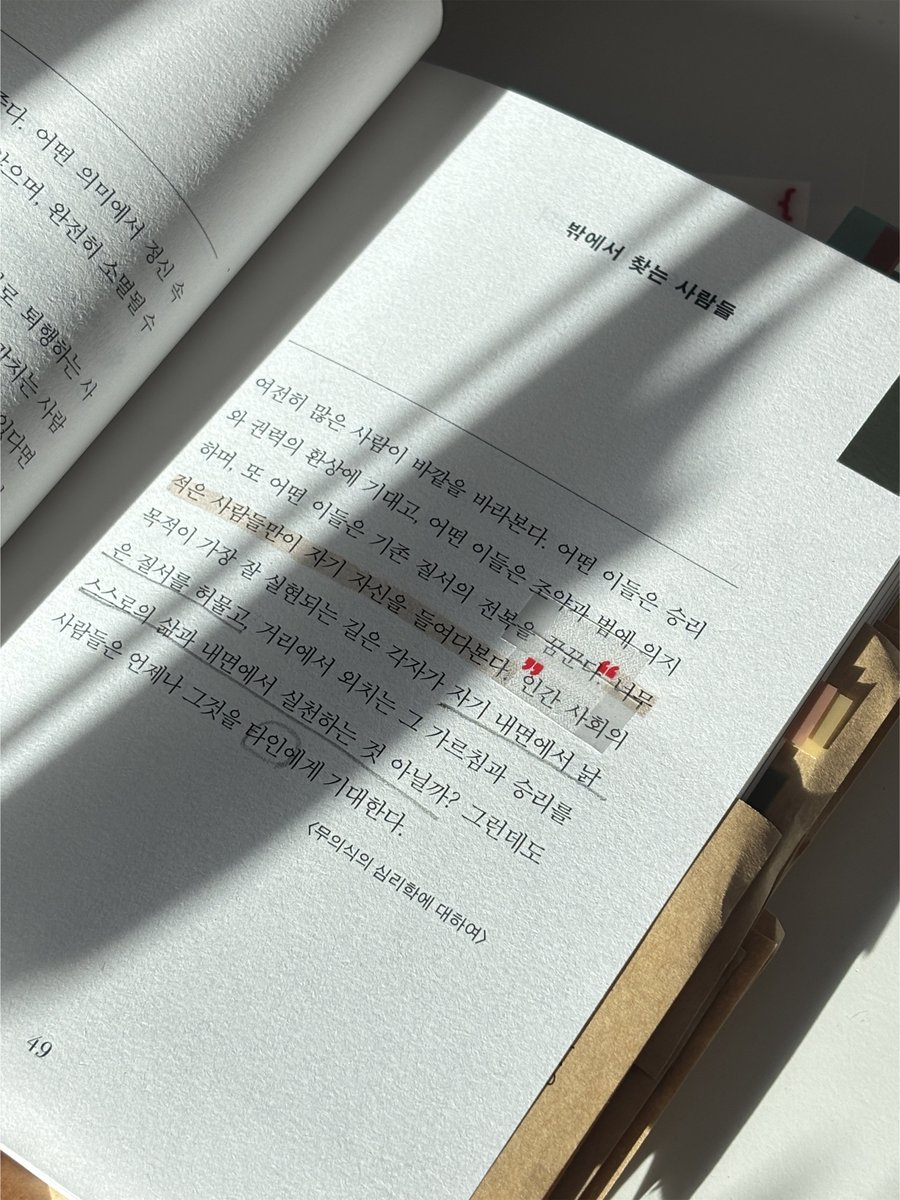 어떤 의미에서 정신 속
완전히 소멸될 수
퇴행하는 사
사람
밖에서 찾는 사람들
여전히 많은 사람이 바깥을 바라본다. 어떤 이들은 승리
와 권력의 환상에 기대고, 어떤 이들은 조약과 법에 의지
하며, 또 어떤 이들은 기존 질서의 전복을 꿈꾼다. 너무
적은 사람들만이 자기 자신을 들여다본다. 인간 사회의
목적이 가장 잘 실현되는 길은 각자가 자기 내면에서 낡
은 질서를 허물고, 거리에서 외치는 그 가르침과 승리를
스스로의 삶과 내면에서 실천하는 것 아닐까? 그런데도
사람들은 언제나 그것을 타인에게 기대한다.
<무의식의 심리학에 대하여>
49